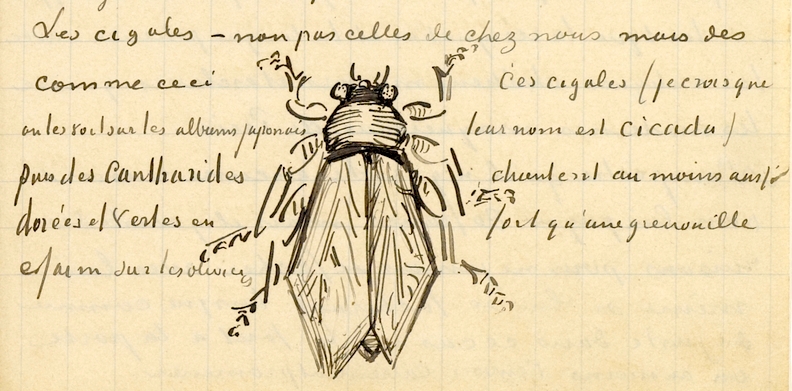 Les cigales – non pas celles de chez nous mais des
comme ceci
on les voit sur les albums japonais
puis des Cantharides
dorées et vertes en
essaim sur les oliviers
Ces cigales (je crois que
leur nom est cicada)
chantent au moins aussi
fort qu'une grenouille